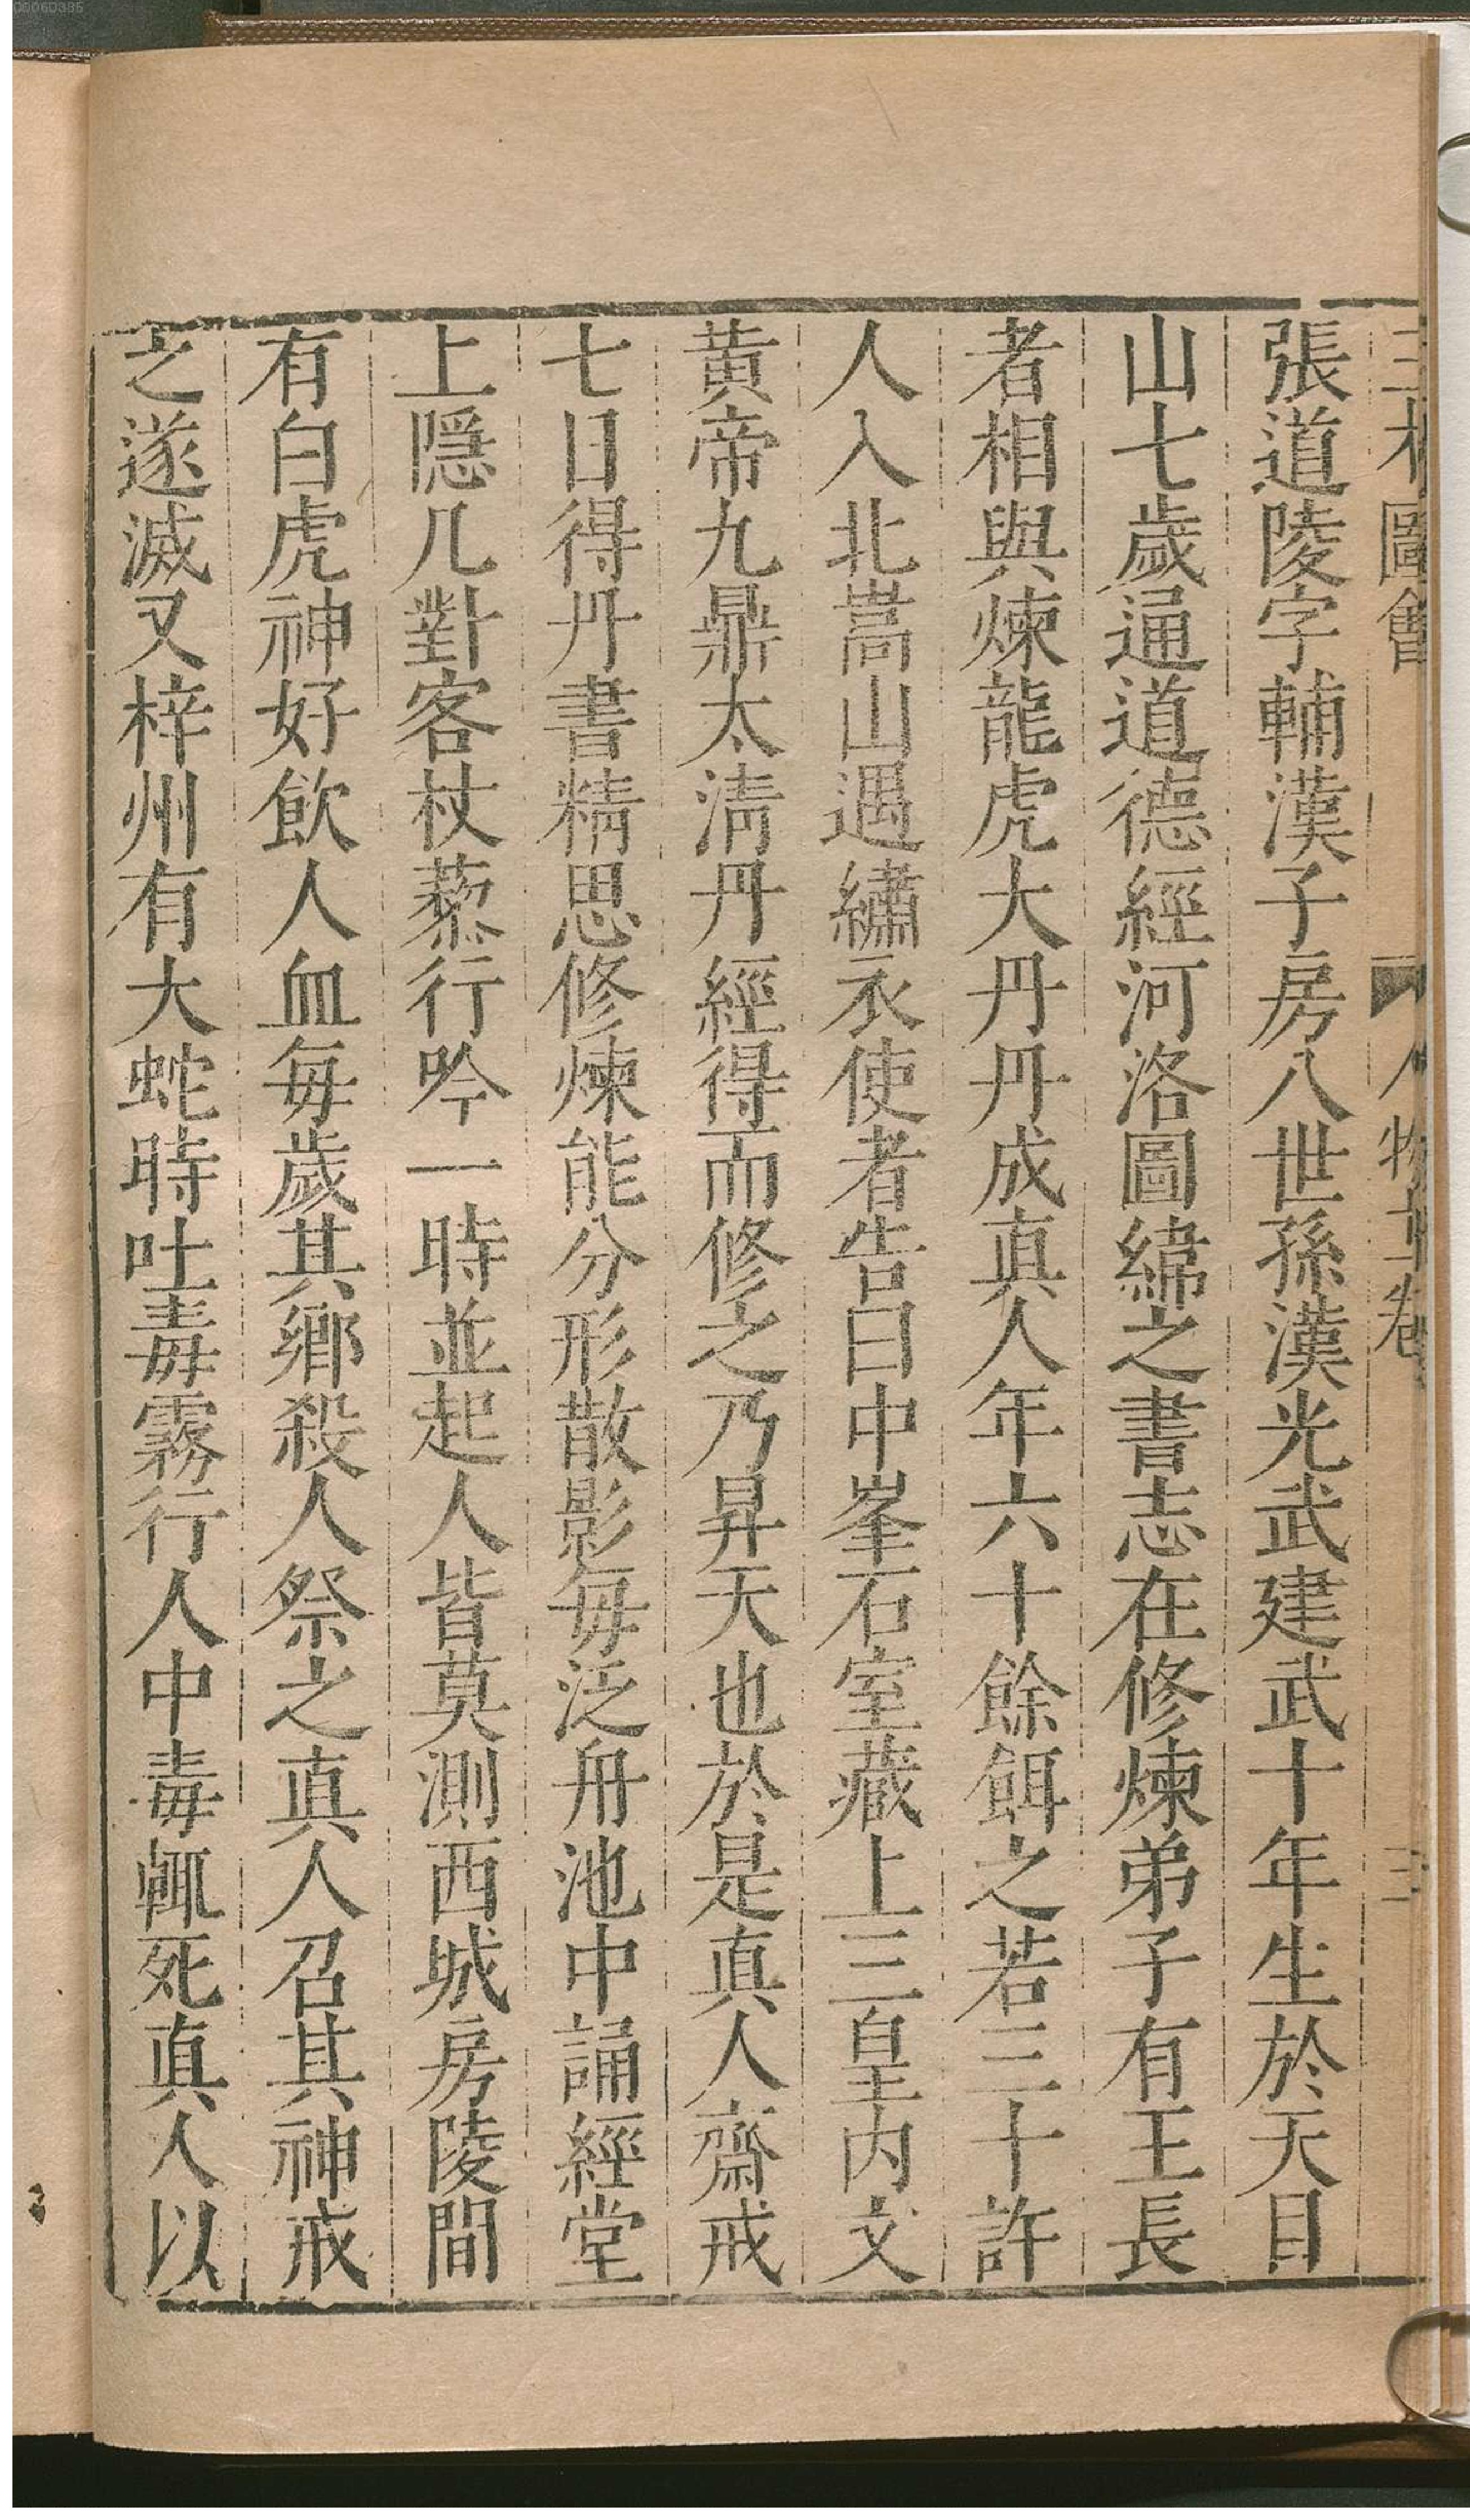 00060385
三才圖會 人物十卷 三
張道陵字輔漢子房八世孫漢光武建武十年生於天目
山七歲通道德經河洛圖緯之書志在修煉弟子有王長
者相與煉龍虎大丹丹成真人年六十餘餌之若三十許
人入北嵩山遇繡衣使者告曰中峯石室藏上三皇內文
黃帝九鼎太清丹經得而修之乃昇天也於是真人齋戒
七日得丹書精思修煉能分形散影每泛舟池中誦經堂
上隱几對客杖藜行吟一時並起人皆莫測西城房陵間
有白虎神好飲人血每歲其鄉殺人祭之真人召其神戒
之遂滅又梓州有大蛇時吐毒霧行人中毒輒死真人以